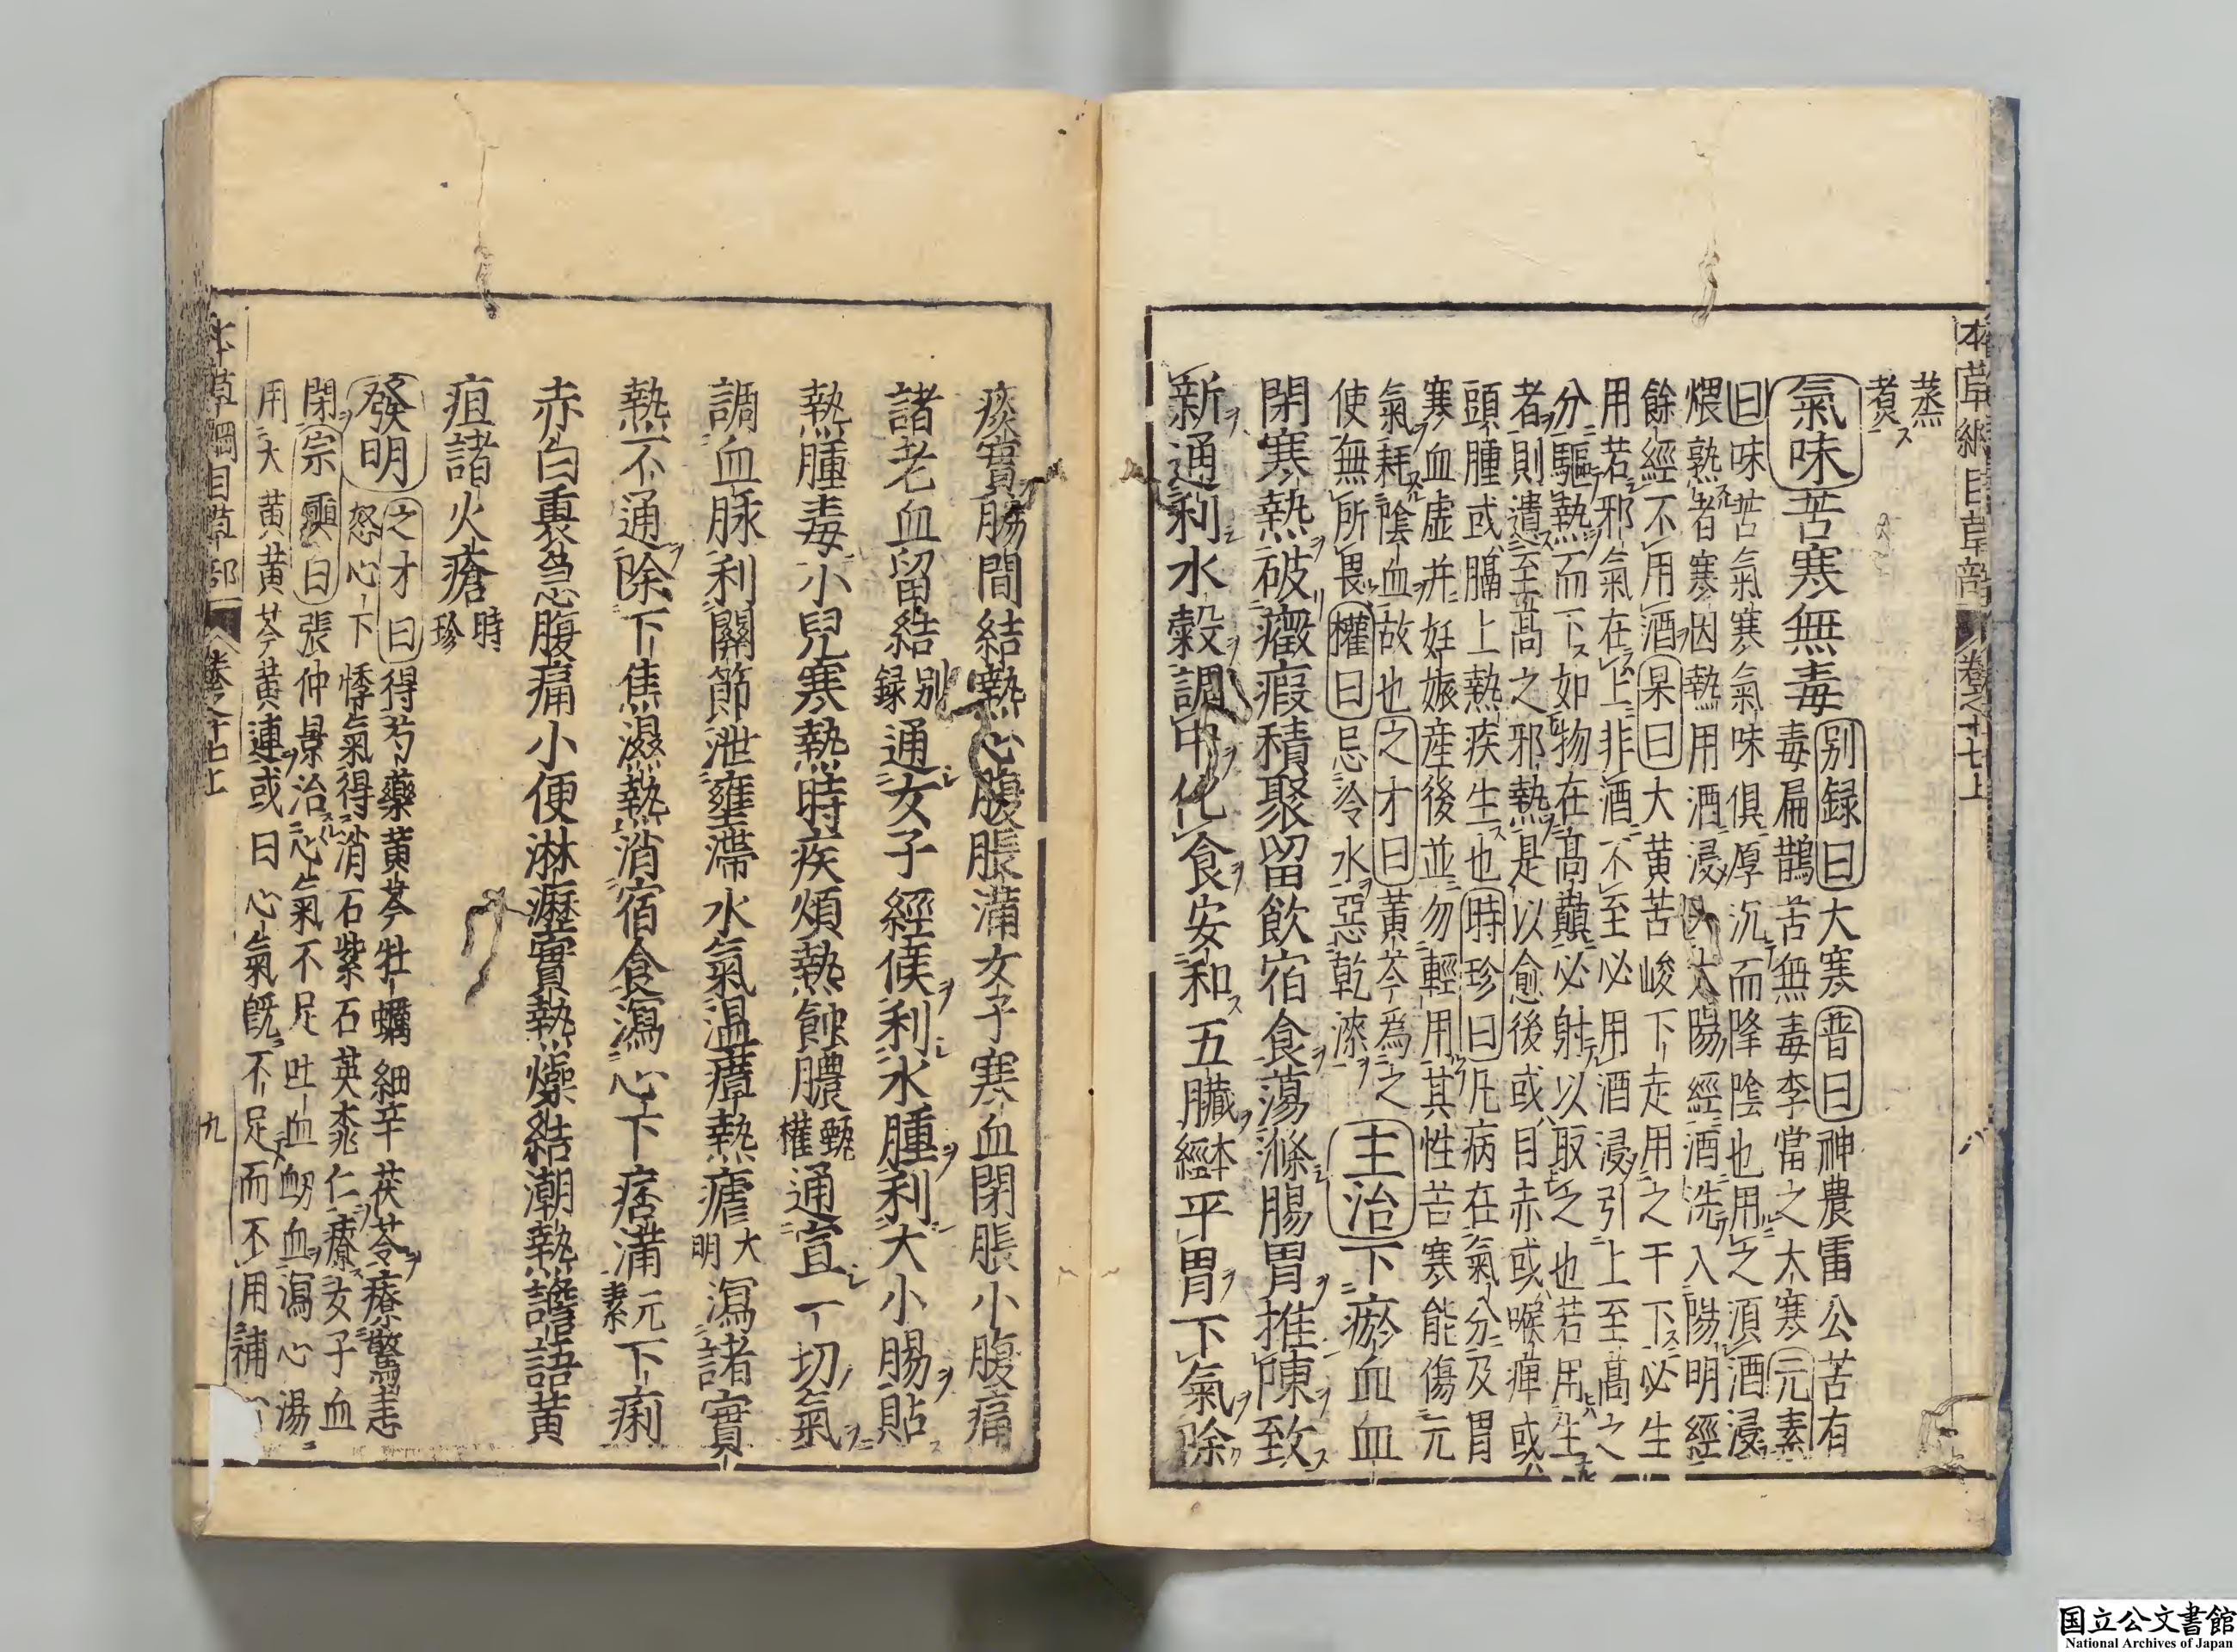 本草綱目草部
卷之十七上
八
蒸
煑
氣味苦寒無毒
别録曰大寒普曰神農雷公苦有
毒扁鵲苦無毒李當之大寒元素
曰味苦氣寒氣味俱厚沉而降陰也用之須酒浸
煨熟者寒因熱用酒浸入太陽經酒洗入陽明經
餘經不用酒杲曰大黄苦峻下走用之于下必生
用若邪氣在上非酒不至必用酒浸引上至高之
分驅熱而下如物在髙巔必射以取之也若用生
者則遺至髙之邪熱是以愈後或目赤或喉痺或
頭腫或膈上熱疾生也時珍曰凡病在氣分及胃
寒血虚并妊娠産後並勿輕用其性苦寒能傷元
氣耗陰血故也之才曰黄芩爲之
使無所畏權曰忌冷水惡乾漆
主治下瘀血血
閉寒熱破癥瘕積聚留飲宿食蕩滌腸胃推陳致
新通利水穀調中化食安和五臓本經平胃下氣除
痰實腸間結熱心腹脹滿女子寒血閉脹小腹痛
諸老血留結别録通女子經候利水腫利大小腸貼
熱腫毒小兒寒熱時疾煩熱蝕膿甄權通宣一切氣
調血脉利關節泄壅滯水氣温瘴熱瘧大明瀉諸實
熱不通除下焦濕熱消宿食瀉心下痞滿元素下痢
赤白裏急腹痛小便淋瀝實熱燥結潮熱譫語黄
疸諸火瘡時珍
發明
之才曰得芍藥黄芩牡蠣細辛茯苓療驚恚
怒心下悸氣得消石紫石英桃仁療女子血
閉宗奭曰張仲景治心氣不足吐血衂血瀉心湯
用大黄黄芩黄連或曰心氣既不足而不用補心
本草綱目草部
卷之十七上
九
国立公文書館
National Archives of Japan